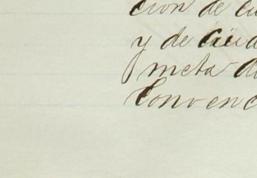 cion de Cu
y de Ciud
meta de
Convenc